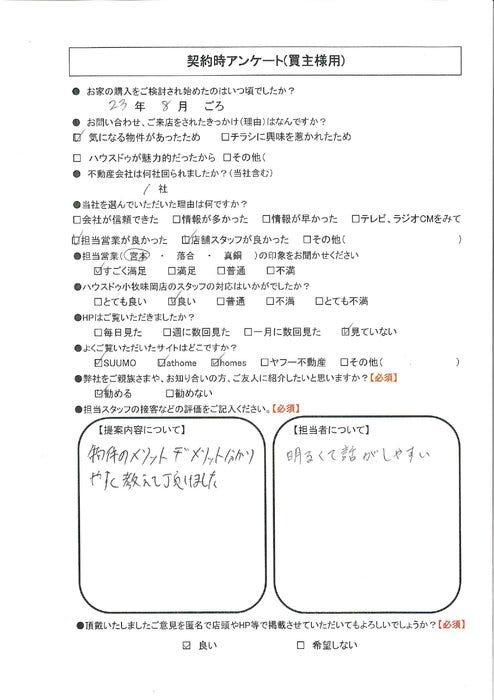 契約時アンケート(買主様用)
● お家の購入をご検討され始めたのはいつ頃でしたか?
23 年 8 月 ごろ
● お問い合わせ、ご来店をされたきっかけ(理由)はなんですか?
☑ 気になる物件があったため □チラシに興味を惹かれたため
□ ハウスドゥが魅力的だったから □その他(
● 不動産会社は何社回られましたか?(当社含む)
1 社
●当社を選んでいただいた理由は何ですか?
□会社が信頼できた □情報が多かった □情報が早かった □テレビ、ラジオCMをみて
☑担当営業が良かった ☑店舗スタッフが良かった □その他( )
●担当営業(宮本 ・ 落合 ・ 真鍋 )の印象をお聞かせください
☑すごく満足 □満足 □普通 □不満
●ハウスドゥ小牧味岡店のスタッフの対応はいかがでしたか?
□とても良い ☑良い □普通 □不満 □とても不満
●HPはご覧いただきましたか?
□毎日見た □週に数回見た □一月に数回見た ☑見ていない
●よくご覧いただいたサイトはどこですか?
☑SUUMO ☑athome ☑homes □ヤフー不動産 □その他( )
●弊社をご親族さまや、お知り合いの方、ご友人に紹介したいと思いますか?【必須】
☑勧める □勧めない
●担当スタッフの接客などの評価をご記入ください。【必須】
【提案内容について】
物件のメリット デメリットわかり
やすく教えて頂けました
【担当者について】
明るくて話がしやすい
●頂戴いたしましたご意見を匿名で店頭やHP等で掲載させていただいてもよろしいでしょうか?【必須】
☑ 良い □ 希望しない